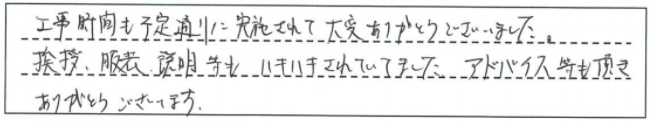 工事時間も予定通りに実施されて大変ありがとうございました。
挨拶、服装、説明等も ハキハキされていてました アドバイス等も頂き
ありがとうございます。